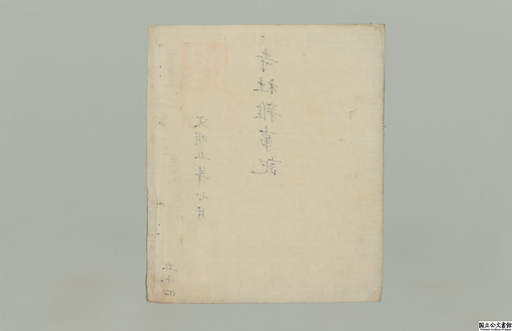 寺社雜事記
文明五年七月
五十四
国立公文書館
National Archives of Japan